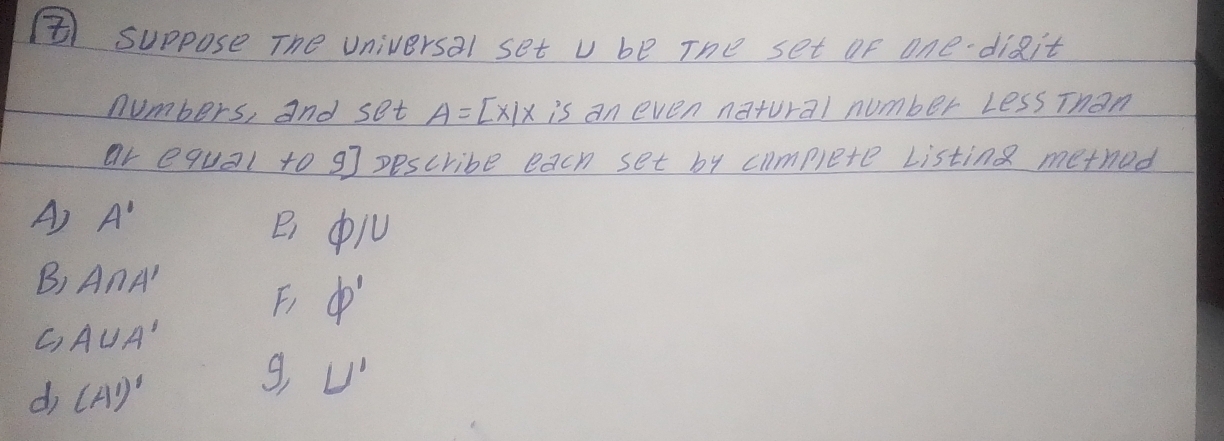 7 Suppose The universal set U be The set of one-digit
numbers, and set A = [x|x is an even natural number Less Than
or equal to 9] Describe each set by complete Listing method
A) A'
B) A∩A'
C) A∪A'
d) (A')'
E) ϕ/U
F) ϕ'
g) U'